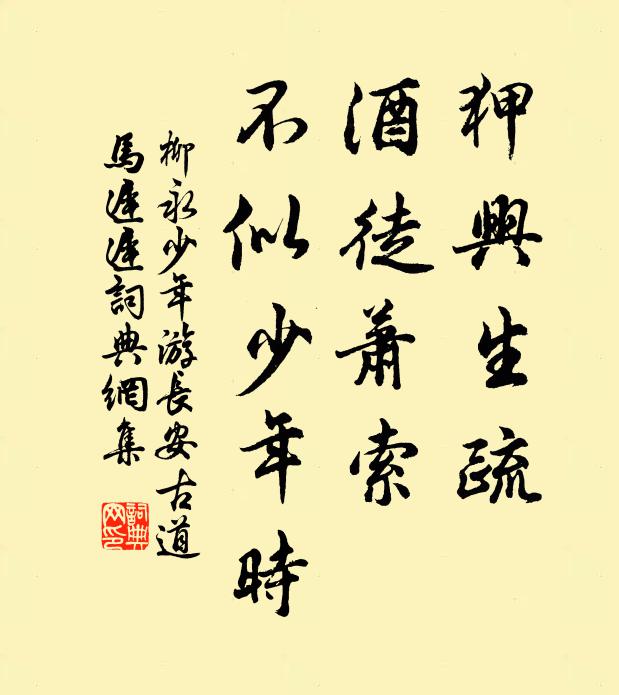 狎興生疏
酒徒蕭索
不似少年時
柳永少年游長安古道
馬遲遲詞典網集
詞典網印